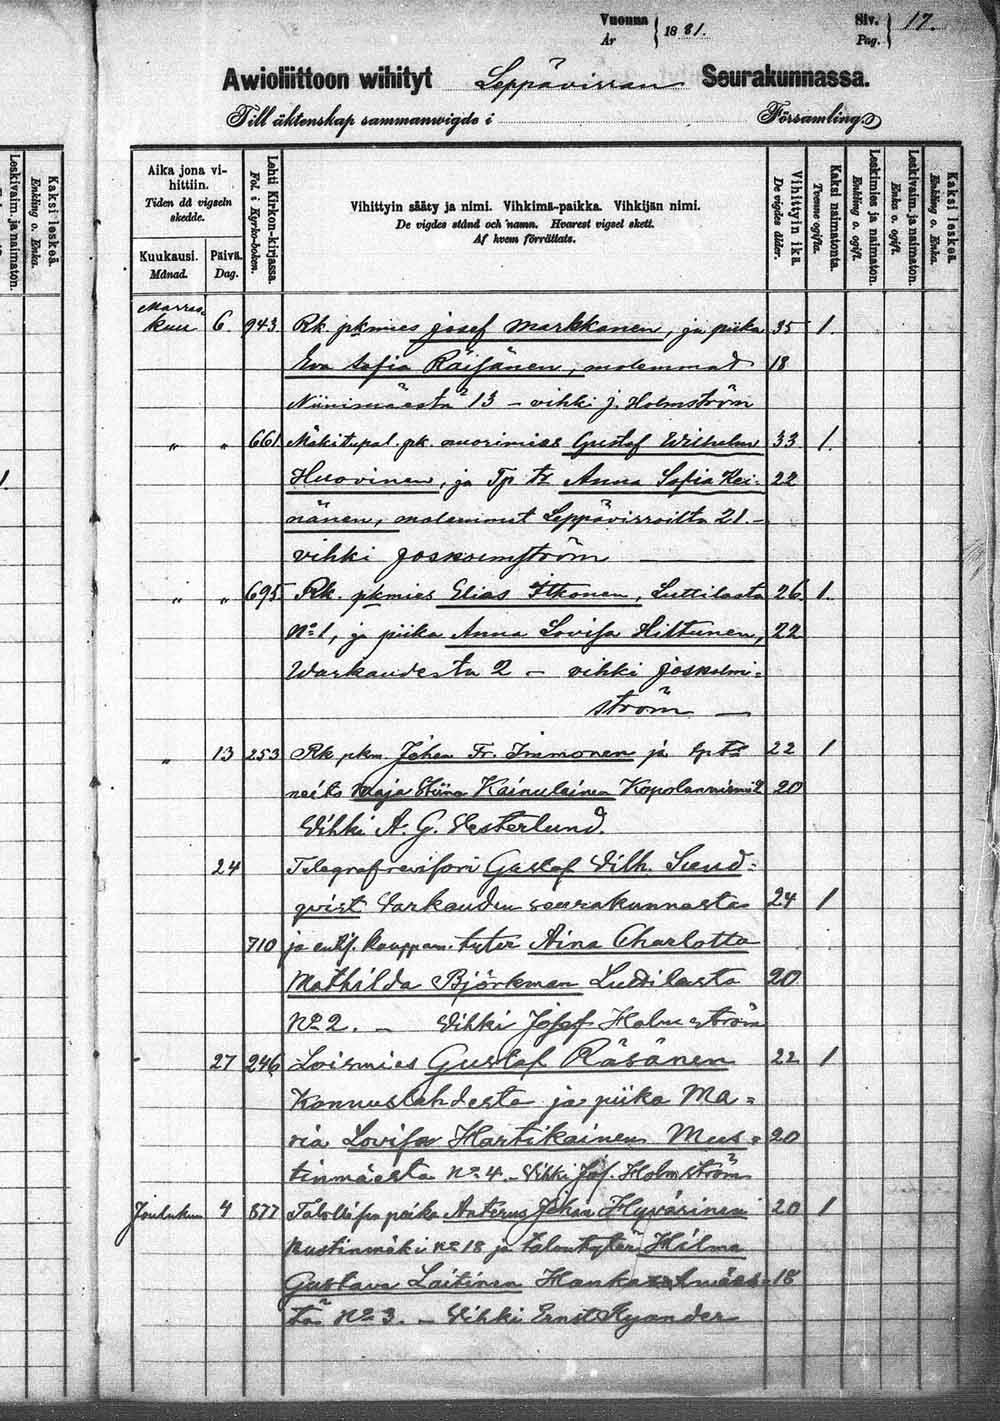 Vuonna 1881. Siv. 17.
År Pag.
Awioliittoon wihityt Leppävirran Seurakunnassa.
Till äktenskap sammanwigde i Församling.
Aika jona vihittiin.
Tiden då vigseln skedde.
Kuukausi. Månad.
Päivä. Dag.
Lehti Kirkon-kirjassa.
Fol. i Kyrko-boken.
Vihittyin sääty ja nimi. Vihkimä-paikka. Vihkijän nimi.
De vigdes stånd och namn. Hvarest vigsel skett.
Af hvem förrättats.
Vihittyin ikä.
De vigdes ålder.
Kaksi naimatonta.
Tvenne ogifta.
Leskimies ja naimaton.
Enkling o. ogift.
Leskivaim. ja naimaton.
Enka o. ogift.
Kaksi leskeä.
Enkling o. Enka.
Leskivaim. ja naimaton.
Kaksi leskeä.
Enkling o. Enka.
Marras-
kuu 6. 943 Rk. pkmies Josef Markkanen, ja piika 35 1.
Eva Sofia Räisänen, molemmat 18
Niinimäestä 13 – vihki J. Holmström
" " 661 Mäkitupal. pk. nuorimies Gustaf Wilhelm 33 1.
Huovinen, ja Tp. Anna Sofia Hei- 22
nänen, molemmat Leppävirroilta 21. –
vihki Jos Holmström
" " 695 Rk. pkmies Elias Itkonen, Luttilasta 26 1.
No 1, ja piika Anna Lovisa Hiltunen, 22
Warkaudesta 2 – vihki Jos Holm-
ström
" 13 253 Rk. pkm. Johan Fr. Immonen ja 22 1
neito Maja Stiina Kainulainen 20
Vihki A. G. Vesterlund.
24 Telegrafrevisori Gustaf Vilh. Sund-
qvist Varkauden seurakunnasta 24 1
710 ja entis. kauppam. tytär Aina Charlotta
Mathilda Björkman Luttilasta 20
No 2. – Vihki Josef Holmström
27 246 Loismies Gustaf Räsänen 22 1
Konnuslahdesta ja piika Ma-
ria Lovisa Hartikainen Mus- 20
tinmäesta No 4 – Vihki Jos. Holmström
Joulukuu 4 877 Talollisen poika Anterus Johan Hyvärinen 20 1
Mustinmäki No 18 ja talontytär Hilma
Gustava Laitinen 18
No 3. – Vihki Ernst Kyander